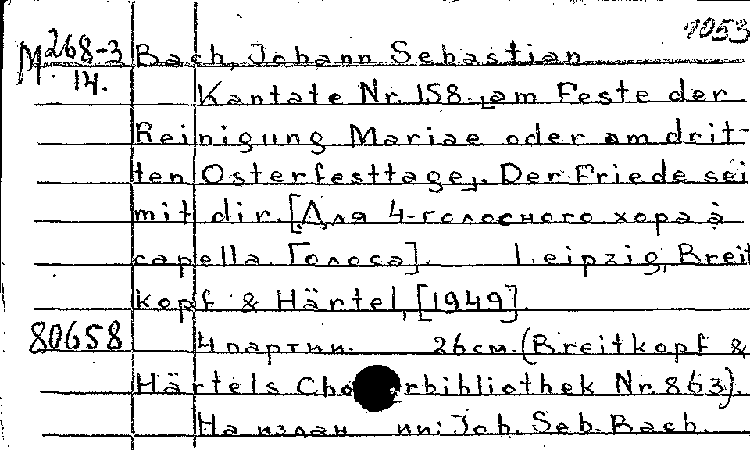 1053
M 268-3 Bach, Johann Sebastian
14. Kantate Nr. 158 „am Feste der
Reinigung Mariae oder am drit-
ten Osterfesttage„. Der Friede sei
mit dir. [Для 4-голосного хора à
capella. Голоса]. Leipzig, Breit
kopf & Härtel, [1949]
80658 4 партии. 26 см. (Breitkopf &
Härtels Cho rbibliothek Nr. 863).
На издан ии: Joh. Seb. Bach.